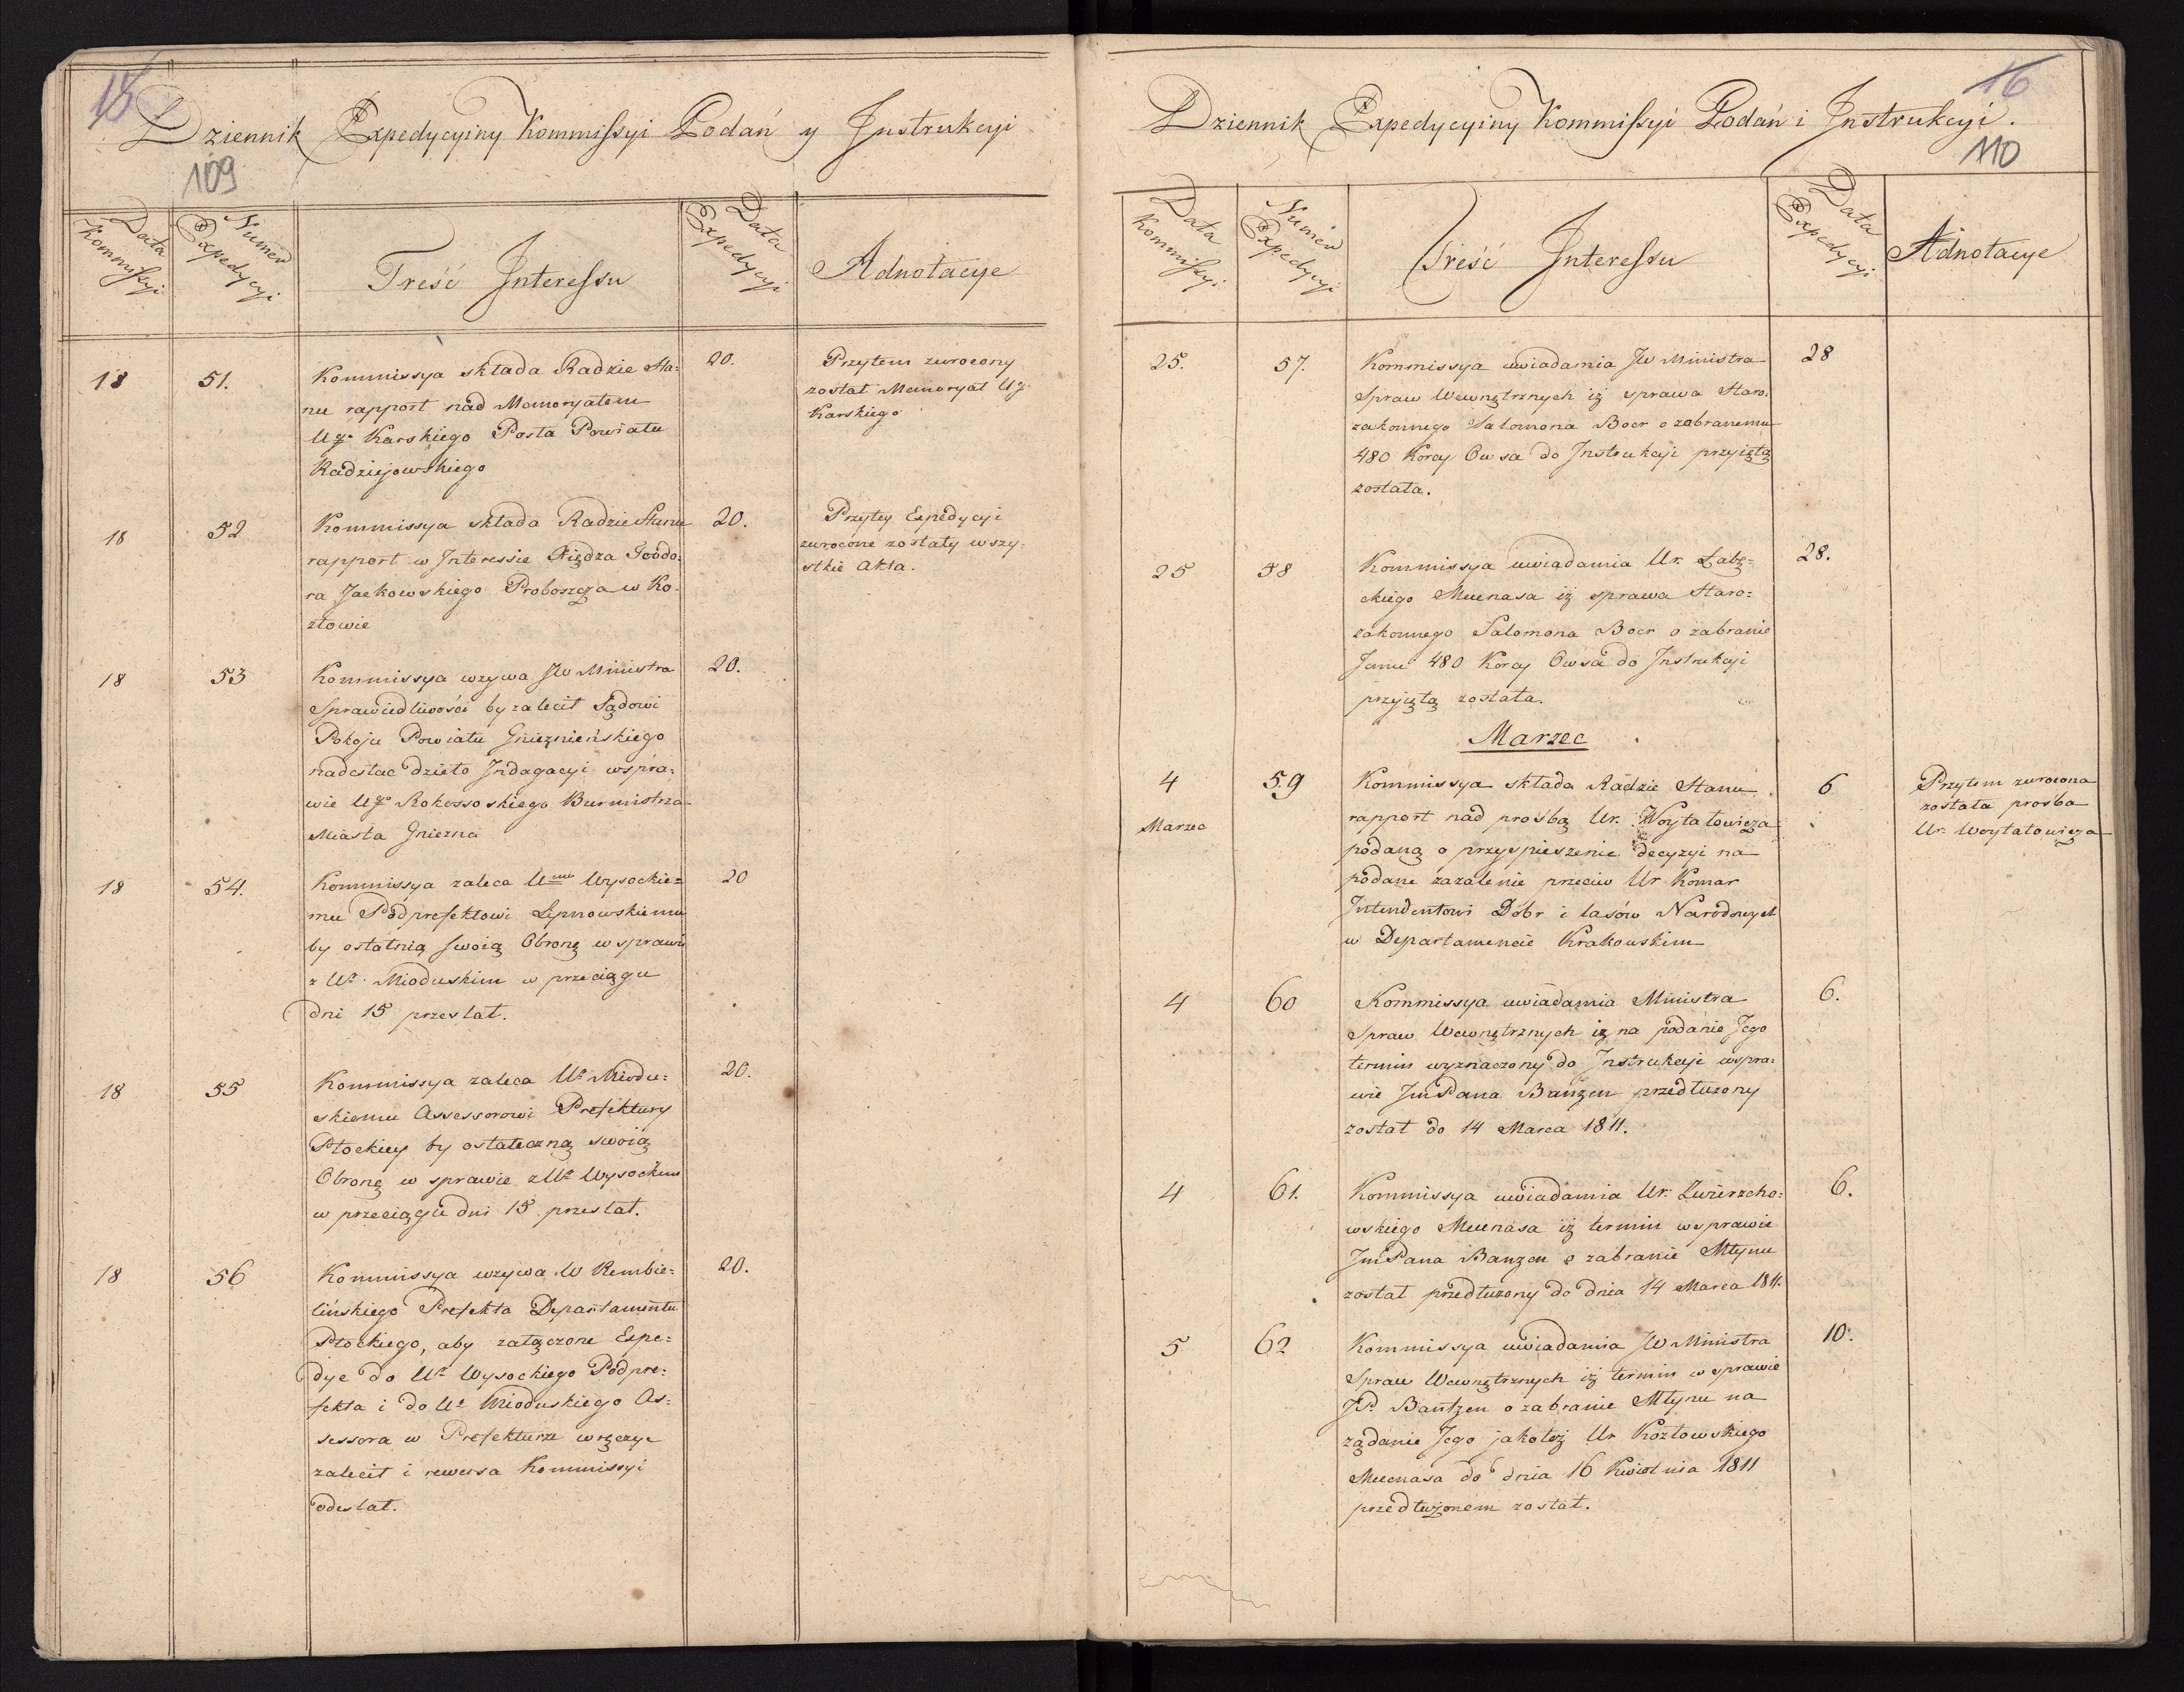 15
Dziennik Expedycyiny Kommissyi Podań y Instrukcyi
109
Data Kommissyi
Numer Expedycyi
Treść Interessu
Data Expedycyi
Adnotacye
18 51. Kommissya składa Radzie Sta= 20. Przytem zwrocony
nu rapport nad Memoryałem został Memoryał Ugo
Ugo Karskiego Posła Powiatu Karskiego
Radziejowskiego
18 52 Kommissya składa Radzie Stanu 20. Przytey Expedycyi
rapport w Interessie Xiędza Teodo= zwrocone zostały wszy=
ra Jackowskiego Proboszcza w Ko= stkie Akta.
złowie
18 53 Kommissya wzywa JW Ministra 20.
Sprawiedliwości by zalecił Sądowi
Pokoju Powiatu Gnieznieńskiego
nadesłac dzieło Indagacyi wspra=
wie Ugo Rokossoskiego Burmistrza
Miasta Gniezna
18 54. Kommissya zaleca Umu Wysockie= 20
mu Podprefektowi Lipnowskiemu
by ostatnią swoią Obronę w sprawie
z Ur. Mioduskim w przeciągu
dni 15 przesłał.
18 55 Kommissya zaleca Ur Miodu= 20.
skiemu Assessorowi Prefektury
Płockiey by ostateczną swoią
Obronę w sprawie z Ur Wysockim
w przeciągu dni 15 przesłał.
18 56 Kommissya wzywa W Rembie= 20.
lińskiego Prefekta Departamentu
Płockiego, aby załączone Expe=
dye do Ur Wysockiego Podpre=
fekta i do Ur Mioduskiego As=
sessora w Prefekturze wręczyc
zalecił i rewersa Kommissyi
odesłał.
16
Dziennik Expedycyiny Kommissyi Podań i Instrukcyi.
110
Data Kommissyi
Numer Expedycyi
Treść Interessu
Data Expedycyi
Adnotacye
25. 57. Kommissya uwiadamia JW Ministra 28
Spraw Wewnętrznych iż sprawa Staro=
zakonnego Salomona Boer o zabranemu
480 Korcy Owsa do Instrukcyi przyiętą
została.
25 58 Kommissya uwiadamia Ur. Łabę= 28.
ckiego Mecenasa iż sprawa Staro=
zakonnego Salomona Boer o zabranie
Jemu 480 Korcy Owsa do Instrukcyi
przyiętą została.
Marzec
4 59 Kommissya składa Radzie Stanu 6 Przytem zwrocona
Marzec rapport nad prośbą Ur. Woytałowicza została prosba
podaną o przyspieszenie decyzyi na Ur. Woytałowicza
podane zazalenie przeciw Ur Komar
Intendentowi Dóbr i lasów Narodowych
w Departamencie Krakowskim
4 60 Kommissya uwiadamia Ministra 6.
Spraw Wewnętrznych iz na podanie Jego
termin wyznaczony do Instrukcyi wspra=
wie JmPana Banzen przedłuzony
został do 14 Marca 1811.
4 61. Kommissya uwiadamia Ur. Zwierzcho= 6.
wskiego Mecenasa iż termin wsprawie
JmPana Banzen o zabranie Młynu
został przedłuzony do dnia 14 Marca 1811.
5 62 Kommissya uwiadamia JW Ministra 10.
Spraw Wewnętrznych iż termin w sprawie
JP. Bantzen o zabranie Młynu na
ządanie Jego jakoteż Ur Kozłowskiego
Mecenasa do dnia 16 Kwietnia 1811
przedłużonem został.